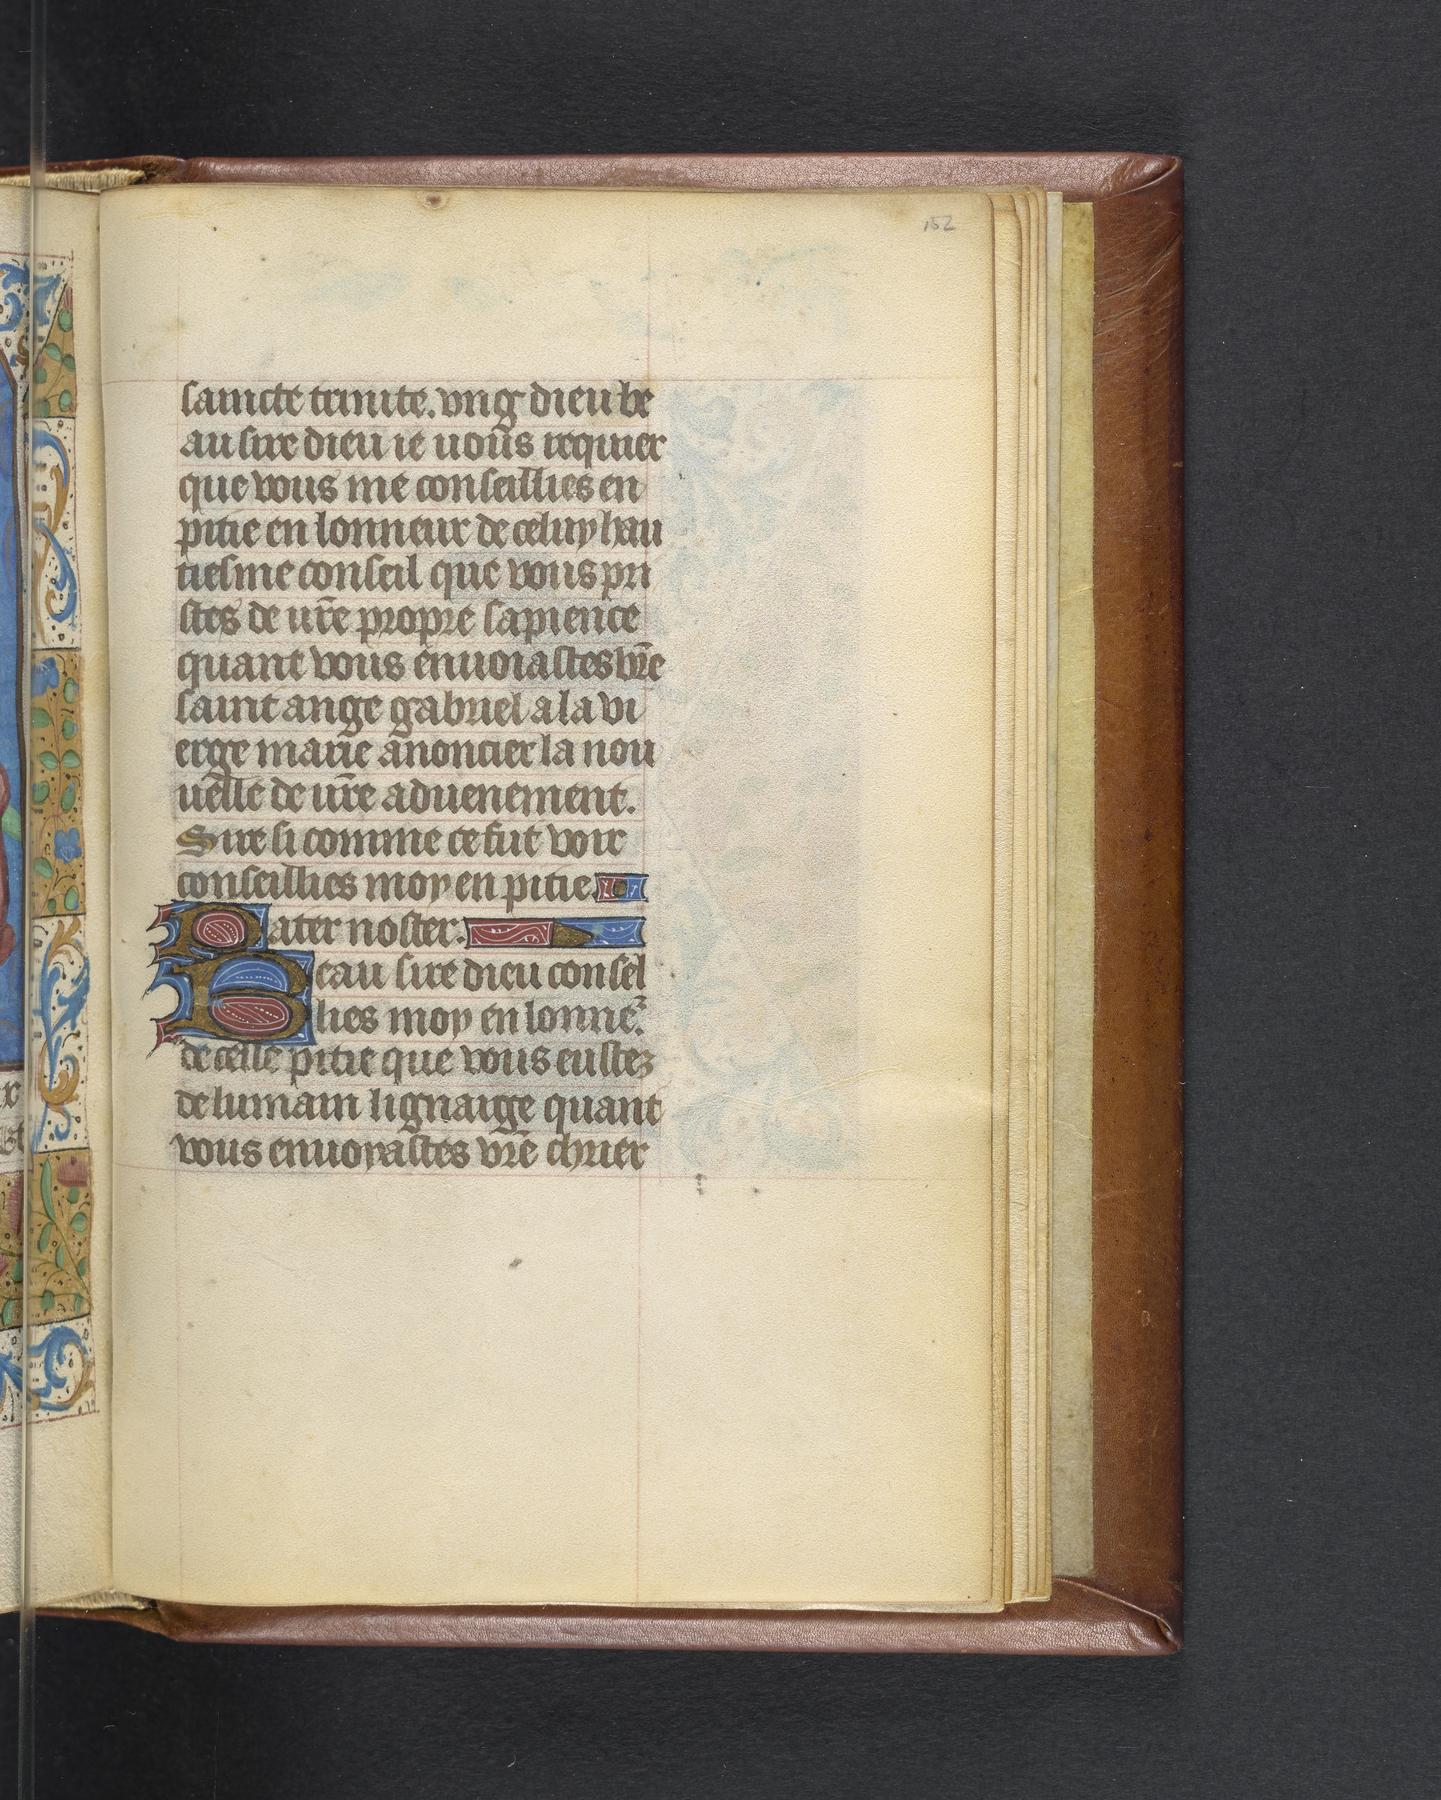 152
saincte trinite. vng dieu be
au sire dieu ie uous requier
que vous me conseillies en
pitie en lonneur de celuy hau
tiesme conseil que vous pri
stes de ur̄e propre sapience
quant vous enuoiastes vr̄e
saint ange gabriel a la vi
erge marie ānoncier la nou
uelle de ur̄e aduenement.
Sire si comme ce fut voir
conseillies moy en pitie.
Pater noster.
Beau sire dieu consel
lies moy en lonneᷣ.
de celle pitie que vous eustez
de lumain lignaige quant
vous enuoyastes vr̄e chier